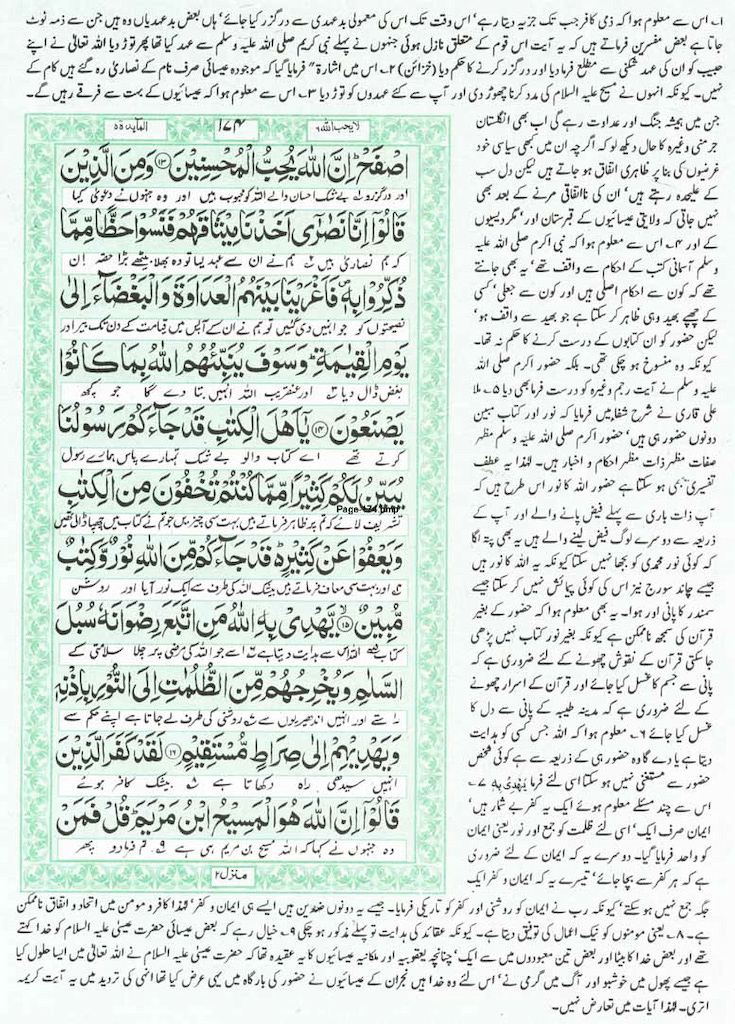 ۱۔ اس سے معلوم ہوا کہ ذمی کافر جب تک جزیہ دیتا رہے‘ اس وقت تک اس کی معمولی بدعہدی سے درگزر کیا جائے‘ ہاں بعض بدعہدیاں وہ ہیں جن سے ذمہ ٹوٹ
جاتا ہے بعض مفسرین فرماتے ہیں کہ یہ آیت اس قوم کے متعلق نازل ہوئی جنہوں نے پہلے نبی کریم صلی اللہ علیہ وسلم سے عہد کیا تھا پھر توڑ دیا اللہ تعالٰی نے اپنے
حبیب کو ان کی عہد شکنی سے مطلع فرما دیا اور درگزر کرنے کا حکم دیا (خزائن) ۲۔ اس میں اشارۃً فرمایا گیا کہ موجودہ عیسائی صرف نام کے نصارٰی رہ گئے ہیں کام کے
نہیں۔ کیونکہ انہوں نے مسیح علیہ السلام کی مدد کرنا چھوڑ دی اور آپ سے کئے گئے عہدوں کو توڑ دیا ۳۔ اس سے معلوم ہوا کہ عیسائیوں کے بہت سے فرقے رہیں گے۔
لا یحب اللہ ۶
۱۷۴
المآیدۃ ۵
اصْفَحْ ؕ اِنَّ اللّٰهَ یُحِبُّ الْمُحْسِنِیْنَ ۝۱۳ وَ مِنَ الَّذِیْنَ
اور درگزرو بے شک احسان والے اللہ کو محبوب ہیں اور وہ جنہوں نے دعوٰی کیا
قَالُوْۤا اِنَّا نَصٰرٰۤى اَخَذْنَا مِیْثَاقَهُمْ فَنَسُوْا حَظًّا مِّمَّا
کہ ہم نصارٰی ہیں ہم نے ان سے عہد لیا تو وہ بھلا بیٹھے بڑا حصہ ان
ذُكِّرُوْا بِهٖ ۪ فَاَغْرَیْنَا بَیْنَهُمُ الْعَدَاوَةَ وَ الْبَغْضَآءَ اِلٰى
نصیحتوں کا جو انہیں دی گئیں تو ہم نے ان کے آپس میں قیامت کے دن تک بیر اور
یَوْمِ الْقِیٰمَةِ ؕ وَ سَوْفَ یُنَبِّئُهُمُ اللّٰهُ بِمَا كَانُوْا
بغض ڈال دیا اور عنقریب اللہ انہیں بتا دے گا جو کچھ
یَصْنَعُوْنَ ۝۱۴ یٰۤاَهْلَ الْكِتٰبِ قَدْ جَآءَكُمْ رَسُوْلُنَا
کرتے تھے اے کتاب والو بے شک تمہارے پاس ہمارے رسول
یُبَیِّنُ لَكُمْ كَثِیْرًا مِّمَّا كُنْتُمْ تُخْفُوْنَ مِنَ الْكِتٰبِ
Page-174.bmp
تشریف لائے کہ تم پر ظاہر فرماتے ہیں بہت سی چیزیں جو تم نے کتاب میں چھپا ڈالی تھیں
وَ یَعْفُوْا عَنْ كَثِیْرٍ ؕ۬ قَدْ جَآءَكُمْ مِّنَ اللّٰهِ نُوْرٌ وَّ كِتٰبٌ
اور بہت سی معاف فرماتے ہیں بیشک اللہ کی طرف سے ایک نور آیا اور روشن
مُّبِیْنٌ ۝۱۵ یَّهْدِیْ بِهِ اللّٰهُ مَنِ اتَّبَعَ رِضْوَانَهٗ سُبُلَ
کتاب اللہ اس سے ہدایت دیتا ہے اسے جو اللہ کی مرضی پر چلا سلامتی کے
السَّلٰمِ وَ یُخْرِجُهُمْ مِّنَ الظُّلُمٰتِ اِلَى النُّوْرِ بِاِذْنِهٖ
راستے اور انہیں اندھیریوں سے روشنی کی طرف لے جاتا ہے اپنے حکم سے
وَ یَهْدِیْهِمْ اِلٰى صِرَاطٍ مُّسْتَقِیْمٍ ۝۱۶ لَقَدْ كَفَرَ الَّذِیْنَ
انہیں سیدھی راہ دکھاتا ہے بیشک کافر ہوئے
قَالُوْۤا اِنَّ اللّٰهَ هُوَ الْمَسِیْحُ ابْنُ مَرْیَمَ ؕ قُلْ فَمَنْ
وہ جنہوں نے کہا کہ اللہ مسیح بن مریم ہی ہے تم فرما دو پھر
منزل ۲
جن میں ہمیشہ جنگ اور عداوت رہے گی اب بھی انگلستان
جرمنی وغیرہ کا حال دیکھ لو کہ اگرچہ ان میں بھی سیاسی خود
غرضیوں کی بنا پر ظاہری اتفاق ہو جاتے ہیں لیکن دل سب
کے علیحدہ رہتے ہیں‘ ان کی نااتفاقی مرنے کے بعد بھی
نہیں جاتی کہ ولایتی عیسائیوں کے قبرستان اور‘ مگر دیسیوں
کے اور ۴۔ اس سے معلوم ہوا کہ نبی اکرم صلی اللہ علیہ
وسلم آسمانی کتب کے احکام سے واقف تھے‘ یہ بھی جانتے
تھے کہ کون سے احکام اصلی ہیں اور کون سے جعلی‘ کسی
کے چھپے بھید وہی ظاہر کر سکتا ہے جو بھید سے واقف ہو‘
لیکن حضور کو ان کتابوں کے درست کرنے کا حکم نہ تھا۔
کیونکہ وہ منسوخ ہو چکی تھی۔ بلکہ حضور اکرم صلی اللہ
علیہ وسلم نے آیت رجم وغیرہ کو درست فرما بھی دیا ۵۔ ملا
علی قاری نے شرح شفا میں فرمایا کہ نور اور کتاب مبین
دونوں حضور ہی ہیں‘ حضور اکرم صلی اللہ علیہ وسلم مظہر
صفات مظہر ذات مظہر احکام و اخبار ہیں۔ لہٰذا یہ عطف
تفسیری بھی ہو سکتا ہے حضور اللہ کا نور اس طرح ہیں کہ
آپ ذات باری سے پہلے فیض پانے والے اور آپ کے
ذریعہ سے دوسرے لوگ فیض لینے والے ہیں یہ بھی پتہ لگا
کہ کوئی نور محمدی کو بجھا نہیں سکتا کیونکہ یہ اللہ کا نور ہیں
جیسے چاند سورج نیز اس کی کوئی پیمائش نہیں کر سکتا جیسے
سمندر کا پانی اور ہوا۔ یہ بھی معلوم ہوا کہ حضور کے بغیر
قرآن کی سمجھ ناممکن ہے کیونکہ بغیر نور کتاب نہیں پڑھی
جا سکتی قرآن کے نقوش چھونے کے لئے ضروری ہے کہ
پانی سے جسم کا غسل کیا جائے اور قرآن کے اسرار چھونے
کے لئے ضروری ہے کہ مدینہ طیبہ کے پانی سے دل کا
غسل کیا جائے ۶۔ معلوم ہوا کہ اللہ جس کسی کو ہدایت
دیتا ہے یا دے گا وہ حضور ہی کے ذریعہ سے ہے کوئی شخص
حضور سے مستغنی نہیں ہو سکتا اسی لئے فرمایا یَهْدِیْ بِهِ ۷۔
اس سے چند مسئلے معلوم ہوئے ایک یہ کفر بے شمار ہیں‘
ایمان صرف ایک‘ اسی لئے ظلمت کو جمع اور نور یعنی ایمان
کو واحد فرمایا گیا۔ دوسرے یہ کہ ایمان کے لئے ضروری
ہے کہ ہر کفر سے بچا جائے‘ تیسرے یہ کہ ایمان و کفر ایک
جگہ جمع نہیں ہو سکتے‘ کیونکہ رب نے ایمان کو روشنی اور کفر کو تاریکی فرمایا۔ جیسے یہ دونوں ضدین ہیں ایسے ہی ایمان و کفر‘ لہٰذا کافر و مومن میں اتحاد و اتفاق ناممکن
ہے۔ ۸۔ یعنی مومنوں کو نیک اعمال کی توفیق دیتا ہے۔ کیونکہ عقائد کی ہدایت تو پہلے مذکور ہو چکی ۹۔ خیال رہے کہ بعض عیسائی حضرت عیسٰی علیہ السلام کو خدا کہتے
تھے اور بعض خدا کا بیٹا اور بعض تین معبودوں میں سے ایک‘ چنانچہ یعقوبیہ اور ملکانیہ عیسائیوں کا یہ عقیدہ تھا کہ حضرت عیسٰی علیہ السلام نے اللہ تعالٰی میں ایسا حلول کیا
ہے جیسے پھول میں خوشبو اور آگ میں گرمی نے‘ اس لئے وہ خدا ہیں نجران کے عیسائیوں نے حضور کی بارگاہ میں یہی عرض کیا تھا انہی کی تردید میں یہ آیت کریمہ
اتری۔ لہٰذا آیات میں تعارض نہیں۔